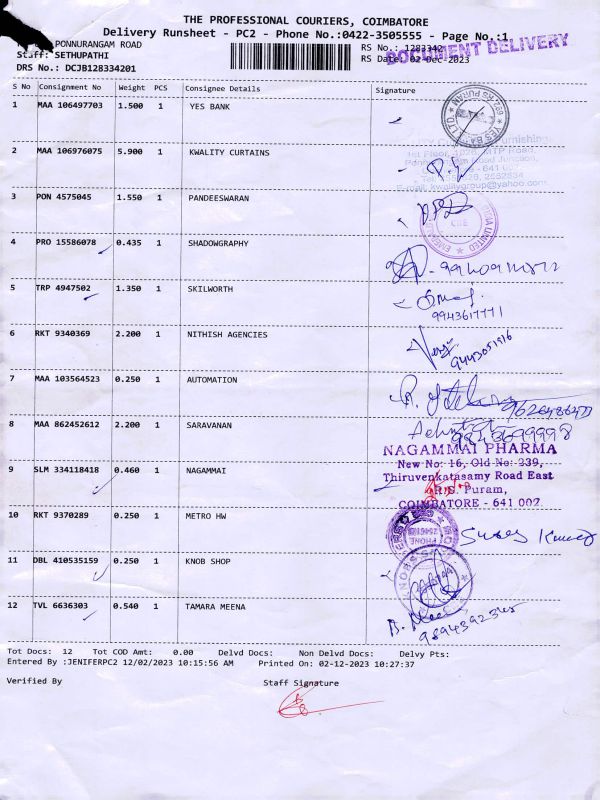 THE PROFESSIONAL COURIERS, COIMBATORE
Delivery Runsheet - PC2 - Phone No.:0422-3505555 - Page No.:1
PONNURANGAM ROAD
RS No.: 1283342
DOCUMENT DELIVERY
Staff: SETHUPATHI
RS Date: 02-Dec-2023
DRS No.: DCJB128334201
S No Consignment No Weight PCS Consignee Details Signature
1 MAA 106497703 1.500 1 YES BANK
2 MAA 106976075 5.900 1 KWALITY CURTAINS
3 PON 4575045 1.550 1 PANDEESWARAN
4 PRO 15586078 0.435 1 SHADOWGRAPHY
5 TRP 4947502 1.350 1 SKILWORTH
9943617771
6 RKT 9340369 2.200 1 NITHISH AGENCIES
9443051916
7 MAA 103564523 0.250 1 AUTOMATION
8 MAA 862452612 2.200 1 SARAVANAN
9843699998
NAGAMMAI PHARMA
New No: 16, Old No: 239,
9 SLM 334118418 0.460 1 NAGAMMAI
Thiruvenkatasamy Road East
R.S. Puram,
COIMBATORE - 641 002
10 RKT 9370289 0.250 1 METRO HW
11 DBL 410535159 0.250 1 KNOB SHOP
12 TVL 6636303 0.540 1 TAMARA MEENA
9894392345
Tot Docs: 12 Tot COD Amt: 0.00 Delvd Docs: Non Delvd Docs: Delvy Pts:
Entered By :JENIFERPC2 12/02/2023 10:15:56 AM Printed On: 02-12-2023 10:27:37
Verified By Staff Signature